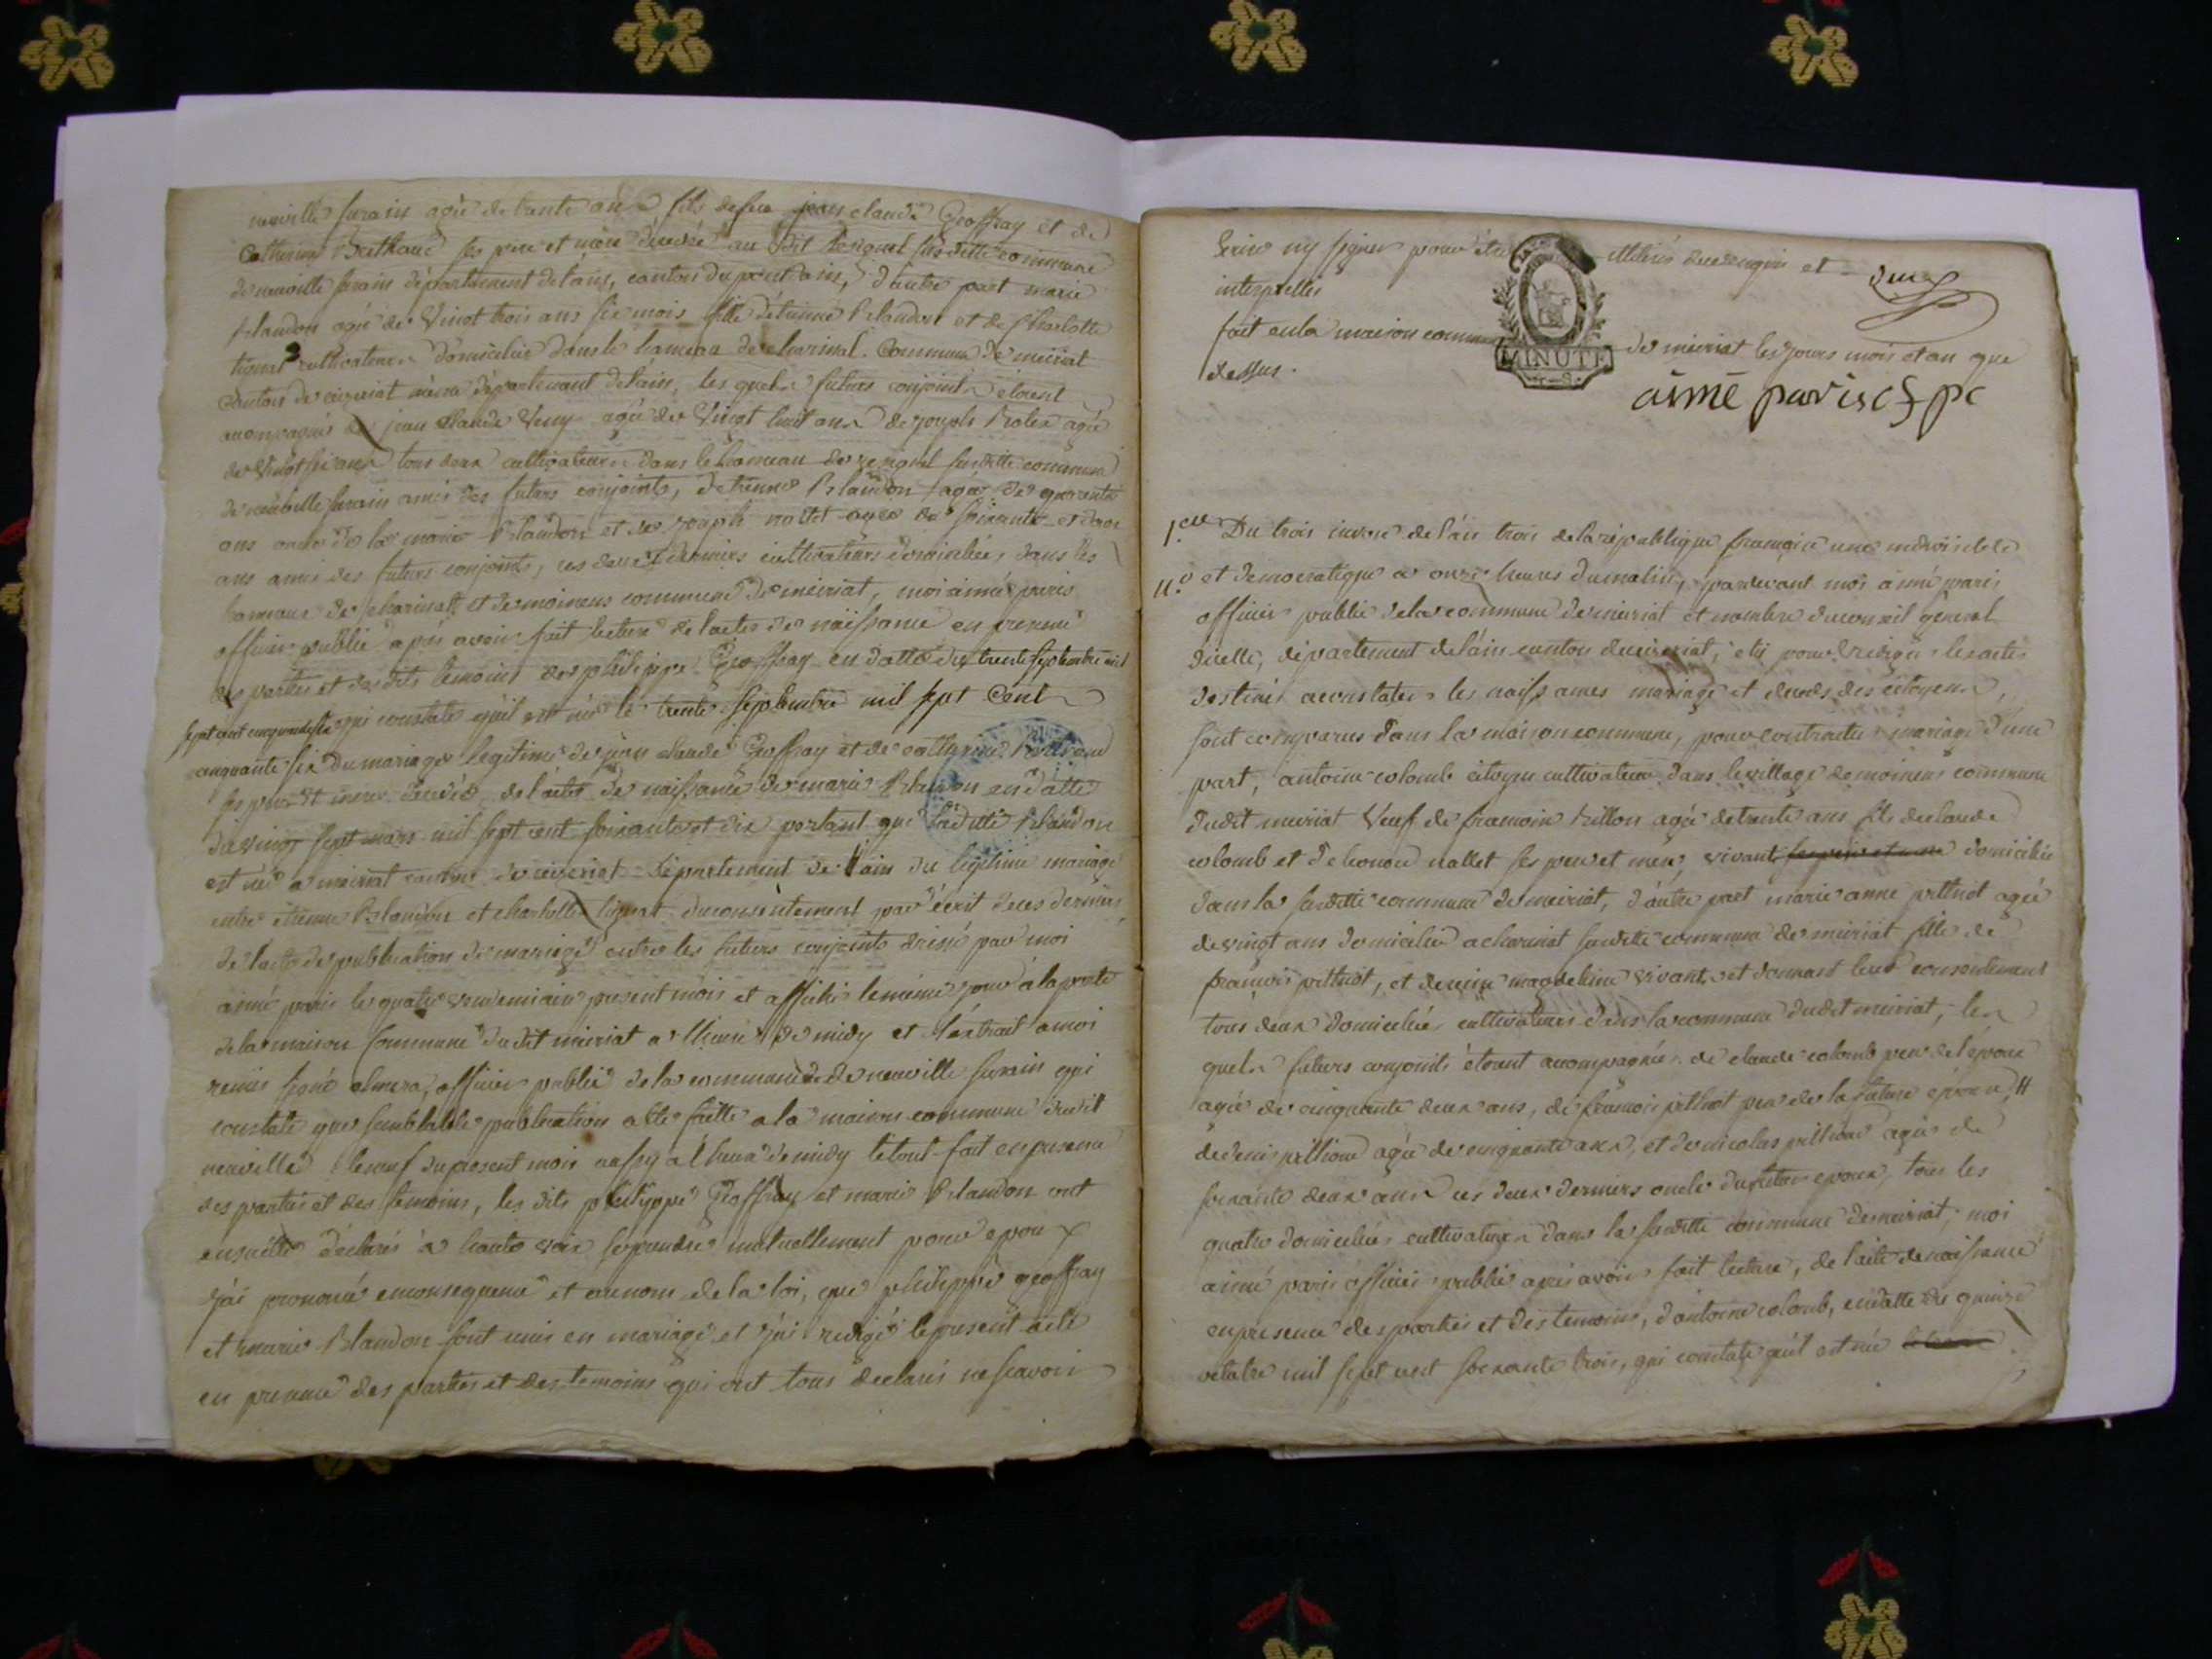 neuville surain agé de trante ans fils de feu jean claude Geoffray et de
Catherine ses père et mère décédé au dit susditte commune
de neuville surain département de l'ain, canton du pont dains, d'autre part marie
Blandon agée de Vingt trois ans six mois fille d'étienne Blandon et de Charlotte
tignat cultivateurs domiciliés dans le hameau de charinal. Commune de meiriat
canton de ceiseriat même département de lain, les quels futurs conjoints étoient
acompagnés de jean claude Veuy agé de Vingt huit ans de joseph agé
de Vingt six ans tous deux cultivateurs dans le hameau de susditte commune
de neuville surain amis des futurs conjoints, d'etienne Blandon agé de quarante
ans oncle de la marie Blandon et de joseph nallet agé de soixante et deux
ans amis des futurs conjoints, ces deux derniers cultivateurs domiciliés dans les
hameaux de charinal et de moinens commune de meiriat, moi aimé paris
officier public après avoir fait lecture de l'acte de naissance en presence
des parties et des dits temoins de philippe Geoffray en datte du trente septembre mil
sept cent cinquante six qui constate qu'il est né le trente septembre mil sept Cent
cinquante six du mariage legitime de jean claude Geoffray et de catherine
ses père et mère décédé de l'acte de naissance de marie Blandon en datte
du vingt sept mars mil sept cent soixante et dix portant que laditte Blandon
est née a meiriat canton de ceiseriat département de l'ain du légitime mariage
entre étienne Blandon et charlotte tignat du consentement par écrit de ces derniers,
de l'acte de publication de mariage entre les futurs conjoints dressé par moi
aimé paris le quatre vendemiaire present mois et affiché le même jour à la porte
de la maison commune dudit meiriat a l'heure de midy et l'extrait a moi
remis signé officier public de la commune de neuville surain qui
constate que semblable publication a été faitte a la maison commune dudit
neuville le neuf du present mois aussy a l'heure de midy le tout fait en presence
des parties et des temoins, les dits philippe Geoffray et marie Blandon ont
ensuitte déclaré à haute voix se prendre mutuellement pour epoux
j'ai prononcé en consequence et au nom de la loi, que philippe geoffray
et marie Blandon sont unis en mariage et j'ai redigé le present acte
en presence des parties et des temoins qui ont tous declarés ne scavoir
Ecrire ny signer pour être illitérés de ce requis et duement
interpellés
fait en la maison commune de meiriat les jours mois et an que
dessus.
MINUTE
aimé paris of pc
1.er Du trois de l'an trois de la république française une indivisible
11.e et democratique a onze heures du matin, pardevant moi aimé paris
officier public de la commune de meiriat et membre du conseil général
d'icelle, département de l'ain canton de ceiseriat, élu pour rédiger les actes
destinés a constater les naissances mariage et décès des citoyens,
sont comparus dans la maison commune, pour contracter mariage d'une
part, antoine colomb citoyen cultivateur dans le village de moinens commune
dudit meiriat Veuf de françoise agé de trante ans fils de claude
colomb et d'honoré nallet ses pere et mère, vivant domicilié
dans la susditte commune de meiriat, d'autre part marie anne pithiot agée
de vingt ans domiciliée a charinat susditte commune de meiriat fille de
françois pithiot, et de magdelaine vivants et donnant leur consentement
tous deux domiciliés cultivateurs dans la commune dudit meiriat, les
quels futurs conjoints étoient acompagnés de claude colomb pere de l'epoux
agé de cinquante deux ans, de françois pithiot pere de la future epouse,
de denis pithioud agé de cinquante ans, et de nicolas pithioud agé de
soixante deux ans ces deux derniers oncle du futur epoux, tous les
quatre domiciliés cultivateurs dans la susditte commune de meiriat, moi
aimé paris officier public après avoir fait lecture, de l'acte de naissance
en presence des parties et des temoins, d'antoine colomb, en datte du quinze
octobre mil sept cent soixante trois, qui constate qu'il est né